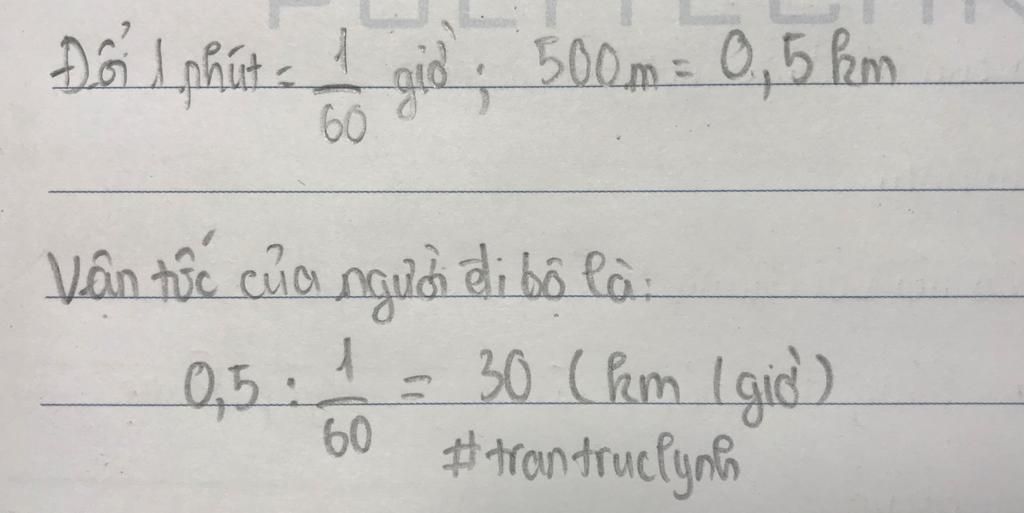 Đổi 1 phút = 1/60 giờ ; 500m = 0,5 km
Vận tốc của người đi bộ là:
0,5 : 1/60 = 30 (km / giờ)
#trantruclynh